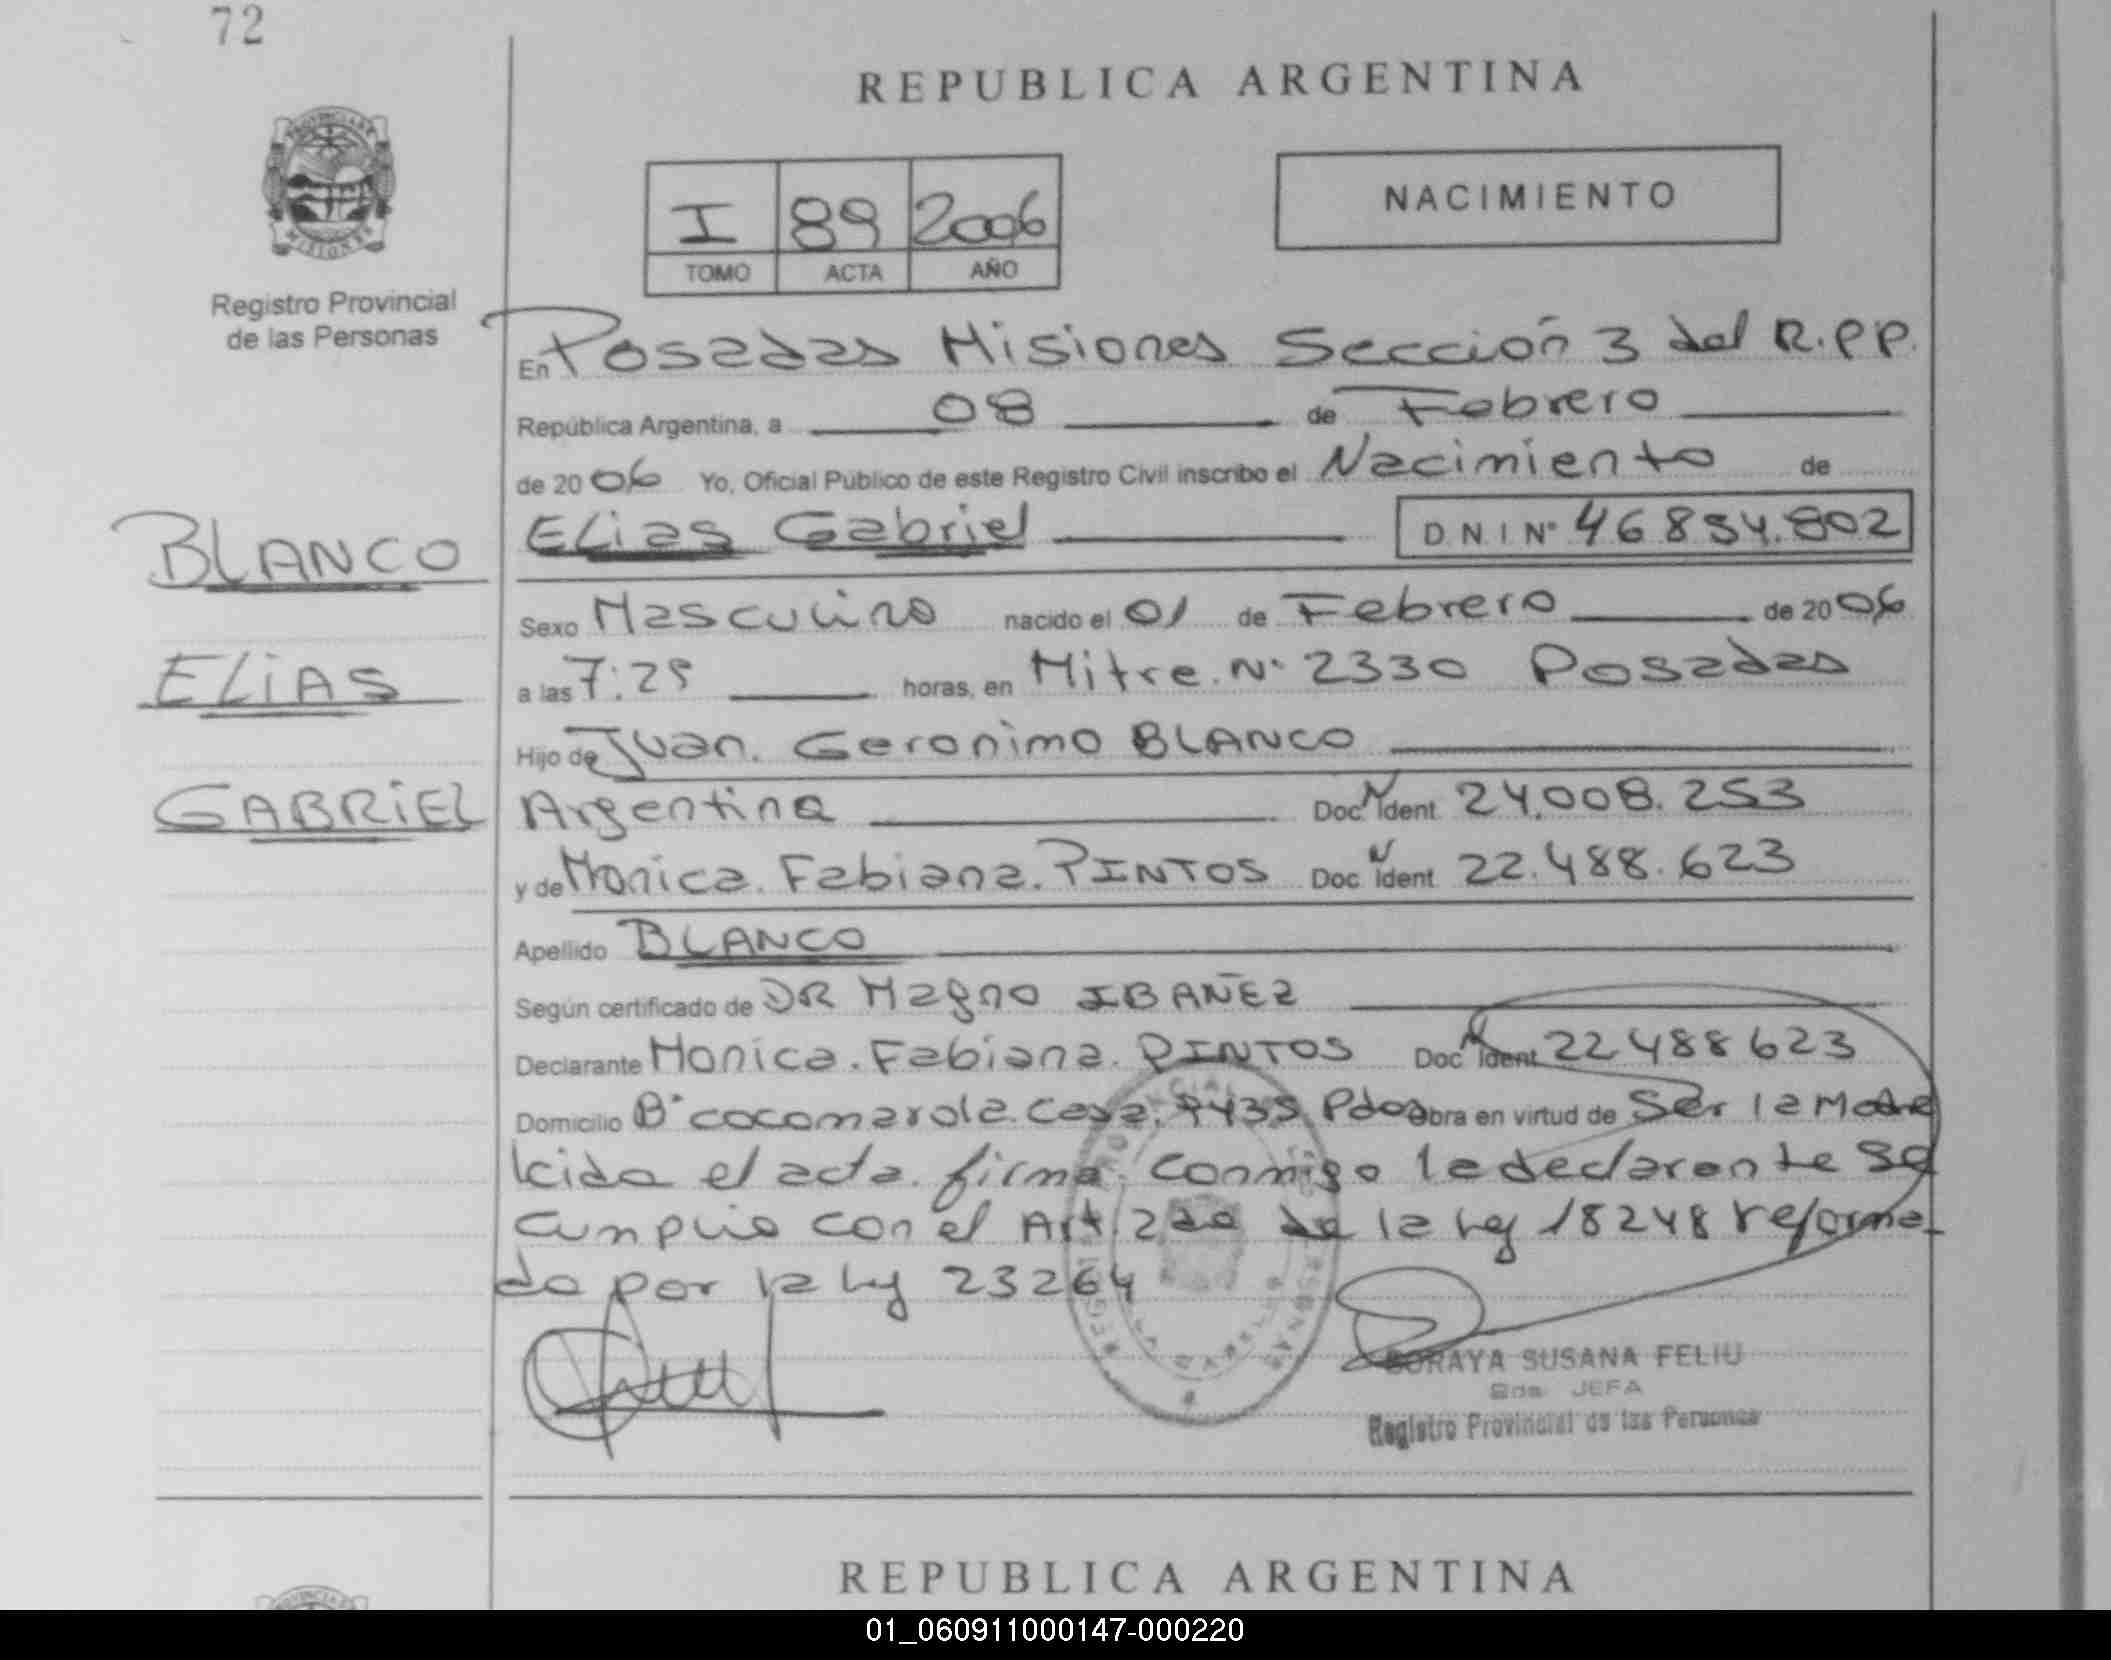 72
REPUBLICA ARGENTINA
PROVINCIA DE
MISIONES
I 89 2006
TOMO ACTA AÑO
NACIMIENTO
Registro Provincial
de las Personas
En Posadas Misiones Sección 3 del R.P.P.
República Argentina, a 08 de Febrero
de 2006 Yo, Oficial Público de este Registro Civil inscribo el Nacimiento de
BLANCO
Elias Gabriel D.N.I Nº 46854.802
Sexo Masculino nacido el 01 de Febrero de 2006
ELiAS
a las 7:25 horas, en Mitre. Nº 2330 Posadas
Hijo de Juan. Geronimo BLANCO
GABRiEL
Argentina Doc N Ident 24.008.253
y de Monica. Fabiana. PINTOS Doc N Ident 22.488.623
Apellido BLANCO
Según certificado de DR Magno IBAÑEZ
Declarante Monica. Fabiana. PINTOS Doc N Ident 22488623
Domicilio Bº cocomarola. Casa. 9435 Pdas obra en virtud de Ser la Madre
leida el acta. firma. Conmigo la declarante se
cumplio con el Art. 2do de la ley 18248 reforma-
da por la ley 23264
SORAYA SUSANA FELIU
JEFA
Registro Provincial de las Personas
REPUBLICA ARGENTINA
01_060911000147-000220